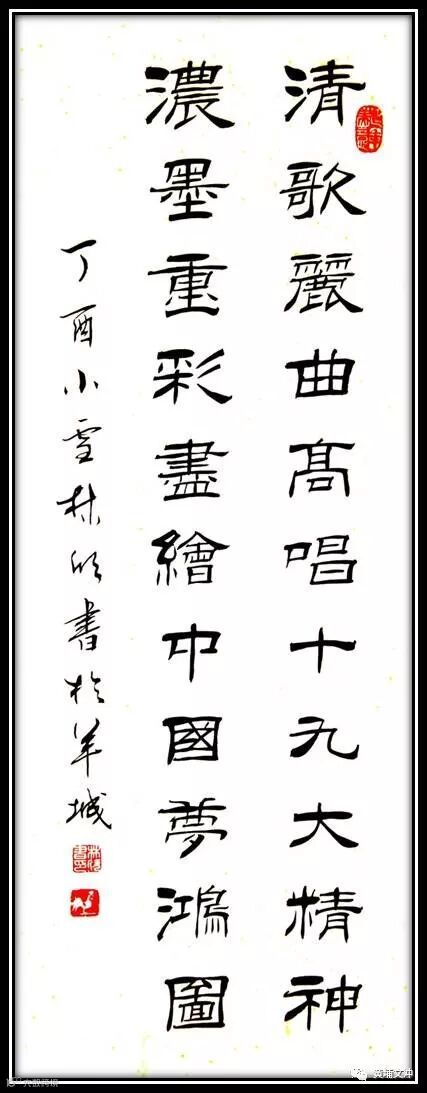 清歌麗曲髙唱十九大精神
濃墨重彩盡繪中國夢鴻圖
丁酉小雪林欣書於羊城
黄埔文冲